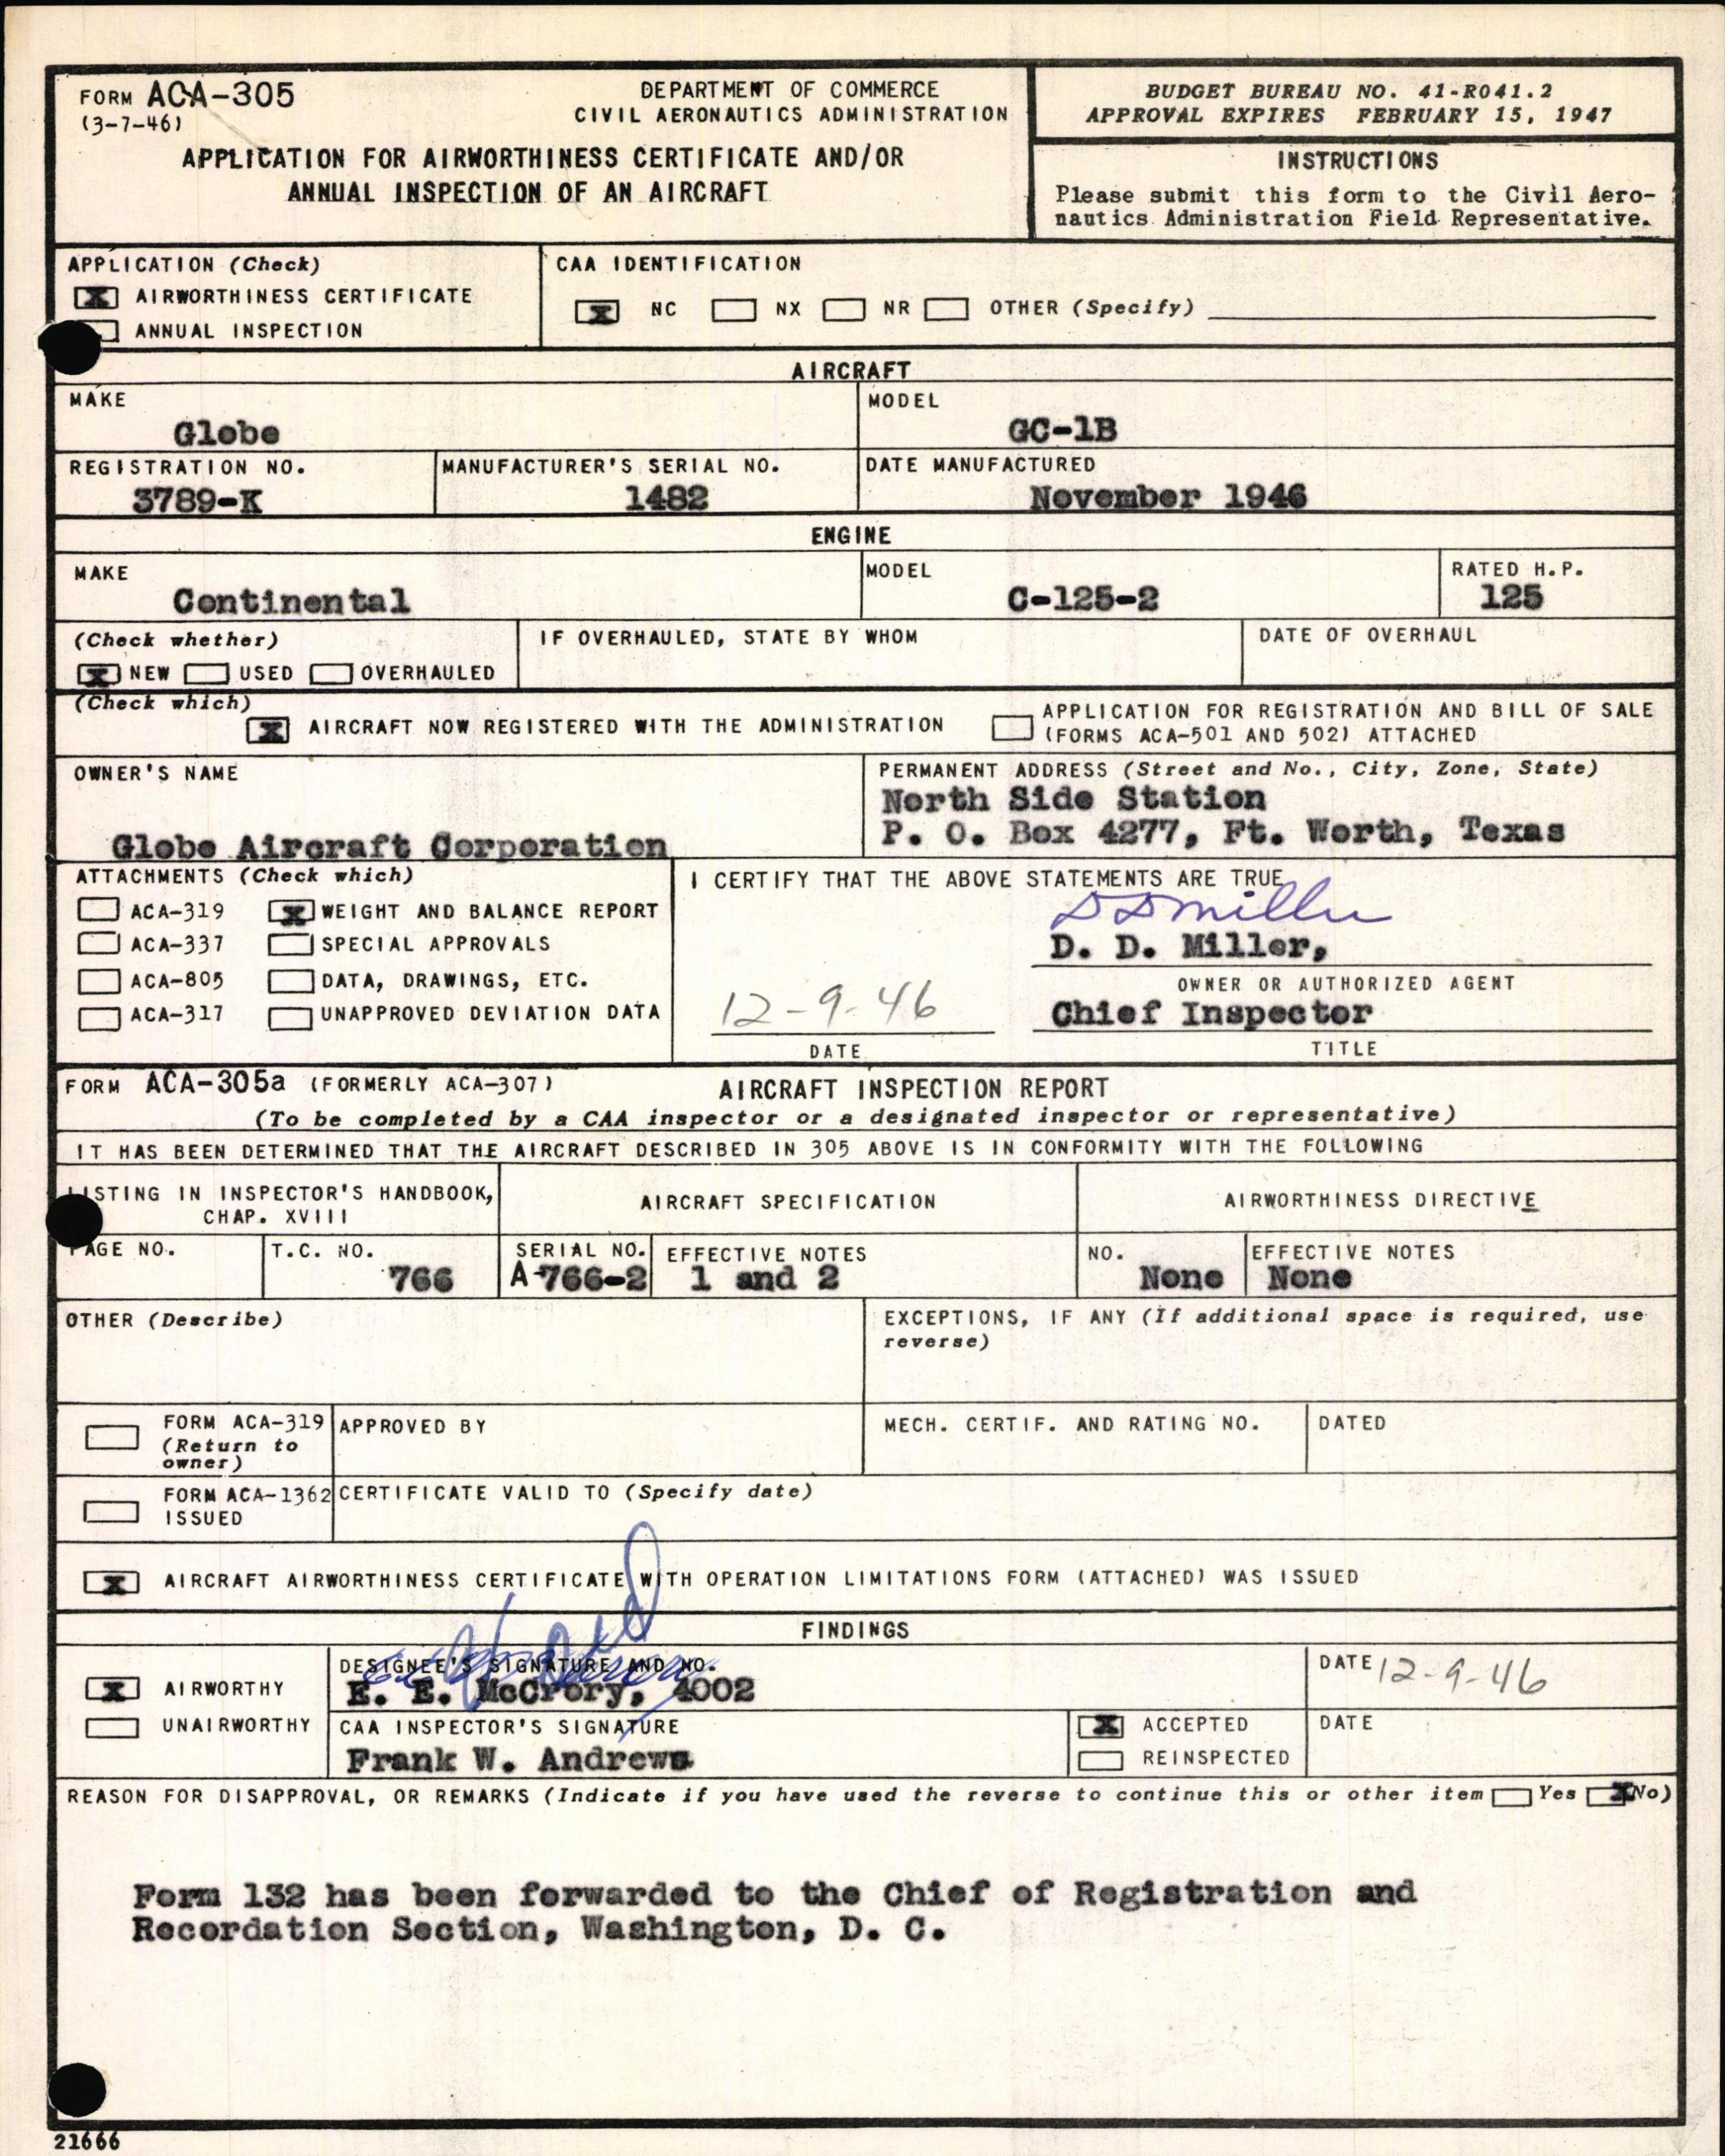 FORM ACA-305
(3-7-46)
DEPARTMENT OF COMMERCE
CIVIL AERONAUTICS ADMINISTRATION
APPLICATION FOR AIRWORTHINESS CERTIFICATE AND/OR
ANNUAL INSPECTION OF AN AIRCRAFT
BUDGET BUREAU NO. 41-R041.2
APPROVAL EXPIRES FEBRUARY 15, 1947
INSTRUCTIONS
Please submit this form to the Civil Aero-
nautics Administration Field Representative.
APPLICATION (Check)
X AIRWORTHINESS CERTIFICATE
ANNUAL INSPECTION
CAA IDENTIFICATION
X NC NX NR OTHER (Specify)
AIRCRAFT
MAKE
Globe
MODEL
GC-1B
REGISTRATION NO.
3789-K
MANUFACTURER'S SERIAL NO.
1482
DATE MANUFACTURED
November 1946
ENGINE
MAKE
Continental
MODEL
C-125-2
RATED H.P.
125
(Check whether)
X NEW USED OVERHAULED
IF OVERHAULED, STATE BY WHOM
DATE OF OVERHAUL
(Check which)
X AIRCRAFT NOW REGISTERED WITH THE ADMINISTRATION
APPLICATION FOR REGISTRATION AND BILL OF SALE
(FORMS ACA-501 AND 502) ATTACHED
OWNER'S NAME
Globe Aircraft Corporation
PERMANENT ADDRESS (Street and No., City, Zone, State)
North Side Station
P. O. Box 4277, Ft. Worth, Texas
ATTACHMENTS (Check which)
ACA-319 X WEIGHT AND BALANCE REPORT
ACA-337 SPECIAL APPROVALS
ACA-805 DATA, DRAWINGS, ETC.
ACA-317 UNAPPROVED DEVIATION DATA
I CERTIFY THAT THE ABOVE STATEMENTS ARE TRUE
D D Miller
D. D. Miller,
OWNER OR AUTHORIZED AGENT
12-9-46
Chief Inspector
DATE
TITLE
FORM ACA-305a (FORMERLY ACA-307) AIRCRAFT INSPECTION REPORT
(To be completed by a CAA inspector or a designated inspector or representative)
IT HAS BEEN DETERMINED THAT THE AIRCRAFT DESCRIBED IN 305 ABOVE IS IN CONFORMITY WITH THE FOLLOWING
LISTING IN INSPECTOR'S HANDBOOK,
CHAP. XVIII
AIRCRAFT SPECIFICATION
AIRWORTHINESS DIRECTIVE
PAGE NO.
T.C. NO.
766
SERIAL NO.
A-766-2
EFFECTIVE NOTES
1 and 2
NO.
None
EFFECTIVE NOTES
None
OTHER (Describe)
EXCEPTIONS, IF ANY (If additional space is required, use
reverse)
FORM ACA-319
(Return to
owner)
APPROVED BY
MECH. CERTIF. AND RATING NO.
DATED
FORM ACA-1362
ISSUED
CERTIFICATE VALID TO (Specify date)
X AIRCRAFT AIRWORTHINESS CERTIFICATE WITH OPERATION LIMITATIONS FORM (ATTACHED) WAS ISSUED
FINDINGS
X AIRWORTHY
UNAIRWORTHY
DESIGNEE'S SIGNATURE AND NO.
E. E. McCrory, 4002
DATE 12-9-46
CAA INSPECTOR'S SIGNATURE
Frank W. Andrews
X ACCEPTED
REINSPECTED
DATE
REASON FOR DISAPPROVAL, OR REMARKS (Indicate if you have used the reverse to continue this or other item Yes X No)
Form 132 has been forwarded to the Chief of Registration and
Recordation Section, Washington, D. C.
21666